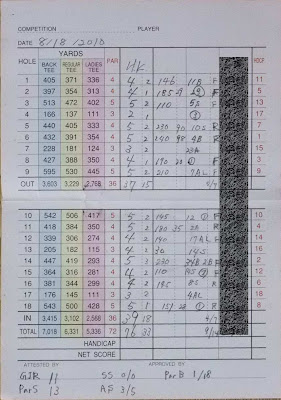 COMPETITION PLAYER
DATE 8/18/2010
HOLE YARDS PAR HDCP
BACK TEE REGULAR TEE LADIES TEE HK
1 405 371 336 4 4 2 146 11B F 11
2 397 354 313 4 4 1 185 4 F 5
3 513 472 402 5 5 2 110 5S F 13
4 166 137 111 3 2 1 F 17
5 440 405 333 4 5 2 230 90 10S R 7
6 432 391 354 4 5 2 190 98 4B R 1
7 228 181 124 3 3 2 23A 15
8 427 388 350 4 4 1 190 F 3
9 595 530 445 5 5 2 210 7AL F 9
OUT 3,603 3,229 2,768 36 37 15
10 542 506 417 5 5 2 195 12 F 10
11 418 384 350 4 5 2 130 35 2A R 4
12 339 306 274 4 4 2 140 17AL F 14
13 205 182 115 3 4 2 30 14S 16
14 447 419 293 4 5 2 230 2B R 2
15 364 316 281 4 4 2 110 F 12
16 382 336 299 4 4 2 185 8S R 6
17 176 145 111 3 3 2 4BL 18
18 543 500 428 5 5 1 157 F 8
IN 3,415 3,102 2,568 36 39 18
TOTAL 7,018 6,331 5,336 72 76 33
HANDICAP
NET SCORE
ATTESTED BY APPROVED BY
GIR 11 SS 0/0 ParB 1/18
ParS 13 AS 3/5